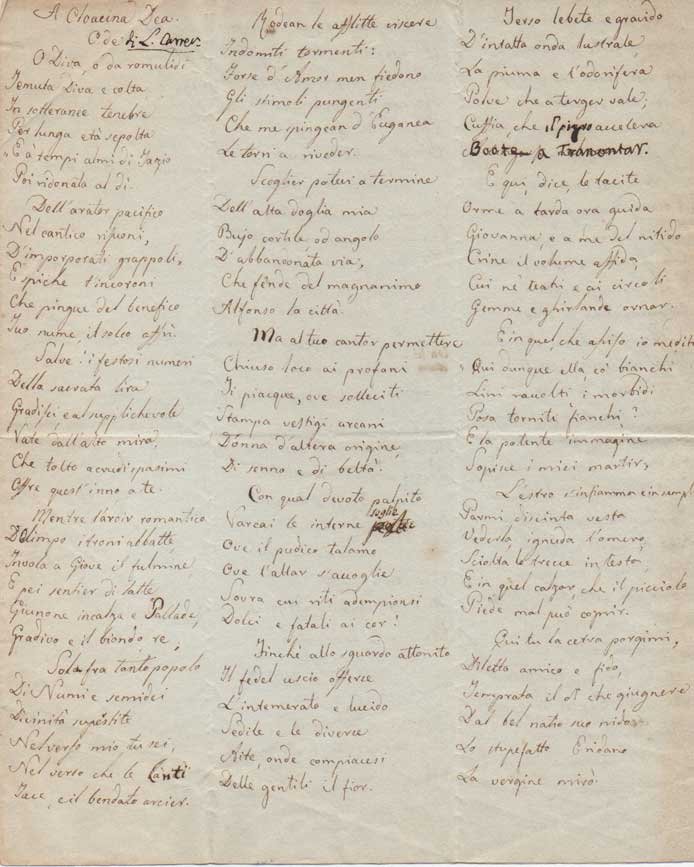 A Cloacina Dea.
Ode di L. Carrer.
O Diva, o da romulidi
Temuta Diva e colta
In sotterranee tenebre
Per lunga età sepolta
E a' tempi almi di Fazio
Poi ridonata al dì.
Dell'arator pacifico
Nel cantico risuoni,
D'imporporati grappoli,
E spiche t'incoroni
Che pingue del benefico
Tuo nume, il solco offrì.
Salve! i festosi numeri
Della sacrata lira
Gradisci, e al supplichevole
Vate dall'alto mira,
Che tolto a crudi spasimi
Offre quest'inno a te.
Mentre l'ardir romantico
D'Olimpo i troni abbatte,
Invola a Giove il fulmine,
E pei sentier di latte
Giunone incalza e Pallade,
Gradivo e il biondo re,
Sola fra tanto popolo
Di Numi e semidei
Divinità supèstite
Nel verso mio tu sei,
Nel verso che le Canti
Tace, e il bendato arcier.
Rodean le afflitte viscere
Indomiti tormenti:
Forse d'Amor men fiedono
Gli stimoli pungenti
Che me spingean d'Euganea
Le torri a riveder.
Scoglier potevi a termine
Dell'alta doglia mia
Bujo cortile od angolo
D'abbandonata via,
Che fende del magnanimo
Alfonso la città.
Ma al tuo cantor permettere
Chiuso loco ai profani
Ti piacque, ove solleciti
Stampa vestigi arcani
Donna d'altera origine,
Di senno e di beltà.
Con qual devoto palpito
Varcai le interne soglie
Ove il pudico talamo
Ove l'altar s'accoglie
Sovra cui riti adempionsi
Dolci e fatali ai cor!
Finchè allo sguardo attonito
Il fedel uscio offerse
L'intemerato e lucido
Sedile e le diverse
Aite, onde compiacesi
Delle gentili il fior.
Terso lebete e gravido
D'intatta onda lustrale,
La piuma e l'odorifera
Polve che a terger vale;
Cuffia, che il pigro accelera
Boote a Tramontar.
E qui, dice, le tacite
Orme a tarda ora guida
Giovanna, e a me del nitido
Crine il volume affida,
Cui ne' teatri e ai circoli
Gemme e ghirlande ornar.
E in quel, che assiso io medito
Qui dunque ella co' bianchi
Lini ravvolti i morbidi
Posa torniti fianchi?
E la potente immagine
Sopisce i miei martir,
L'estro s'infiamma e in sempl
Parmi, discinta vesta
Vederla, ignuda l'omero,
Sciolta le trecce in testa,
E in quel calzar, che il picciolo
Piede mal può coprir.
Qui tu la cetra porgimi,
Diletta amico e fido,
Temprata il dì che giugnere
Dal bel natio suo nido
Lo stupefatto Eridano
La vergine mirò.